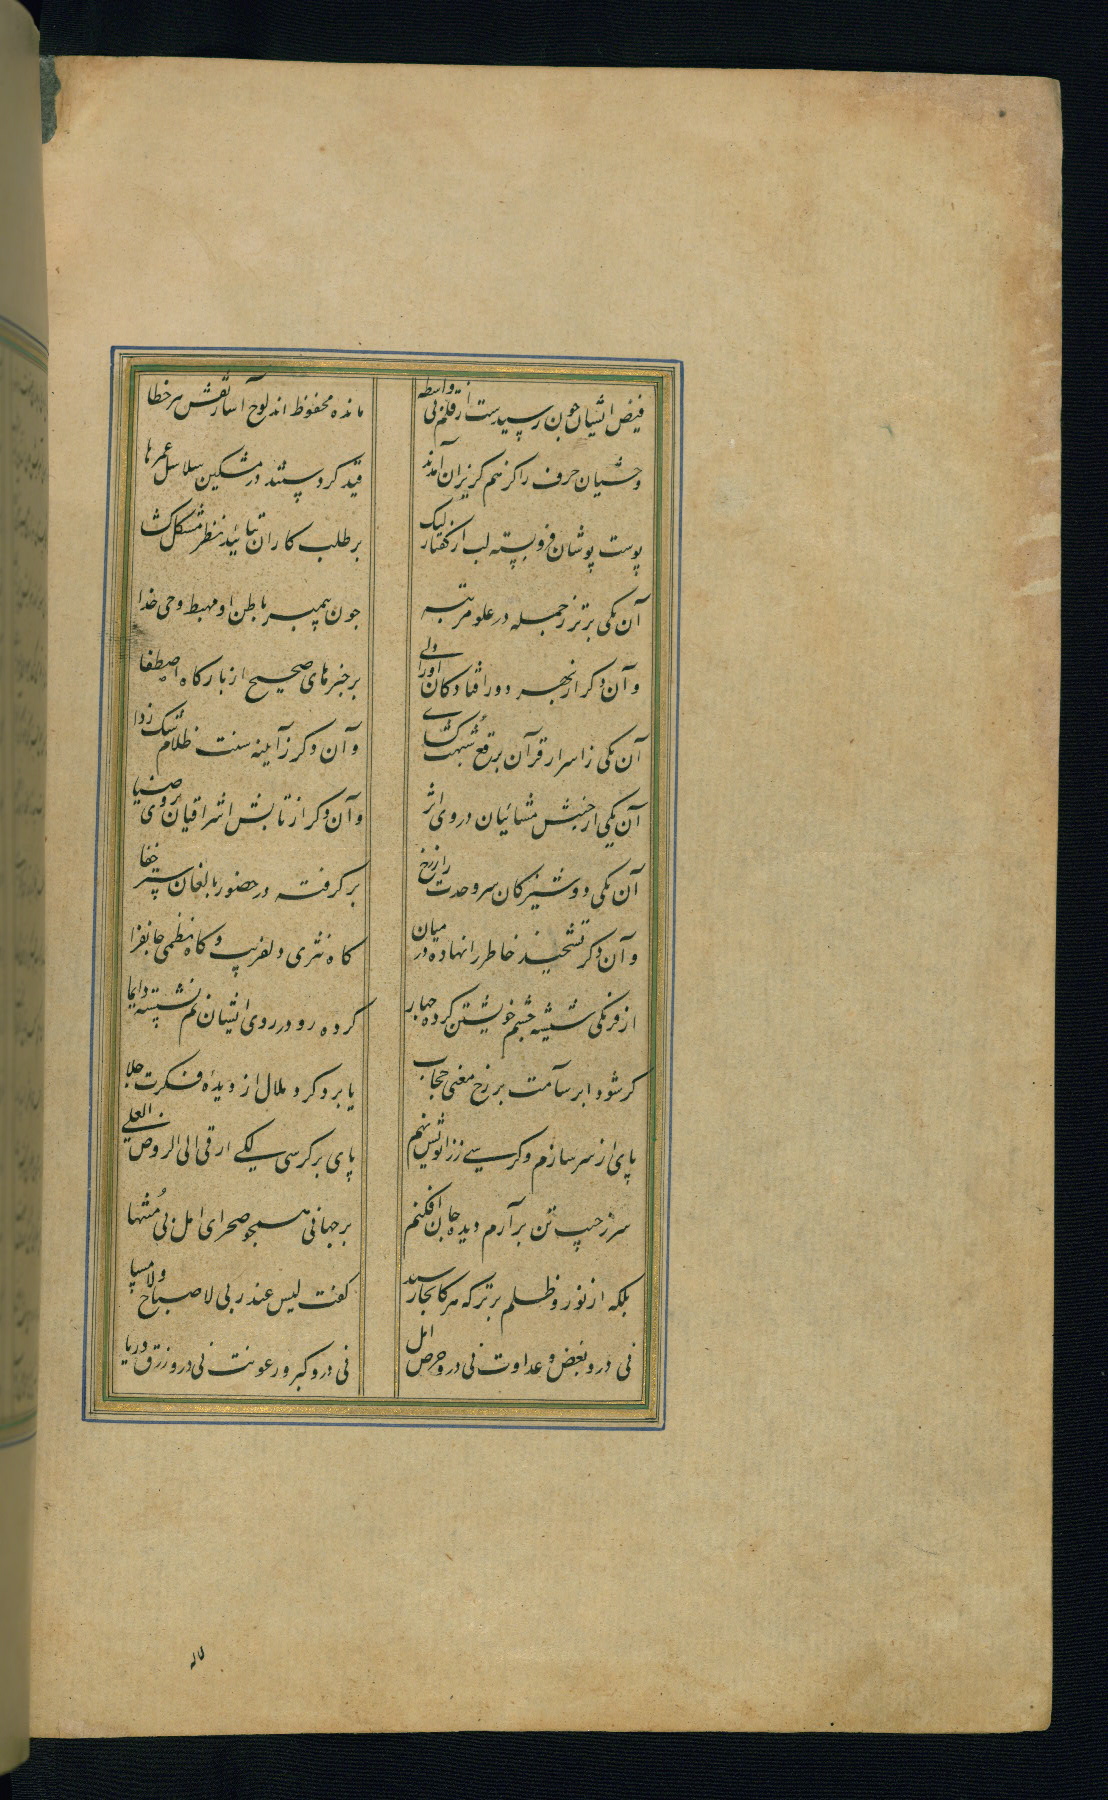 فیض ایشان چون رسیدست از قلم بی واسطه
مانده محفوظ اند لوح آسا ز نقش هر خطا
وحشیان حرف را کز هم گریزان آمدند
قید کردستند در مشکین سلاسل عمرها
پوست پوشان فروبسته لب از گفتار لیک
بر طلب کاران بتائید نظر مشکل گشا
آن یکی برتر ز جمله در علو مرتبه
چون پیمبر باطن او مهبط وحی خدا
و آن دگر از بهر دور افتادگان
بر خبرهای صحیح از بارگاه اصطفا
آن یکی ز اسرار قرآن برقع شبهت گشای
و آن دگر ز آیینه سنت ظلام شک زدا
آن یکی از جنبش مشائیان در وی اثر
و آن دگر از تابش اشراقیان بر وی ضیا
آن یکی دوشیزگان سر وحدت را ز رخ
برگرفته در حضور بالغان ستر خفا
و آن دگر تشحیذ خاطر را نهاده در میان
گاه نثری دلفریب و گاه نظمی جانفزا
از فرنگی شیشه چشم خویشتن کرده چهار
کرده رو در روی ایشان هم نشسته دایما
گر شود ابر سآمت بر رخ معنی حجاب
یا برد گرد ملال از دیدهٔ فکرت جلا
پای از سر سازم و کرسی ز زانو پس نهم
پای بر کرسی لکی ارقی الی الروض العلی
سر ز جیب تن برآرم دیده جان افکنم
بر جهانی همچو صحرای امل بی منتها
بلکه از نور و ظلم برتر که هر کانجا رسید
گفت لیس عند ربی لا صباح ولا مسا
نی درو بغض و عداوت نی درو حرص امل
نی درو کبر و رعونت نی درو زرق و ریا